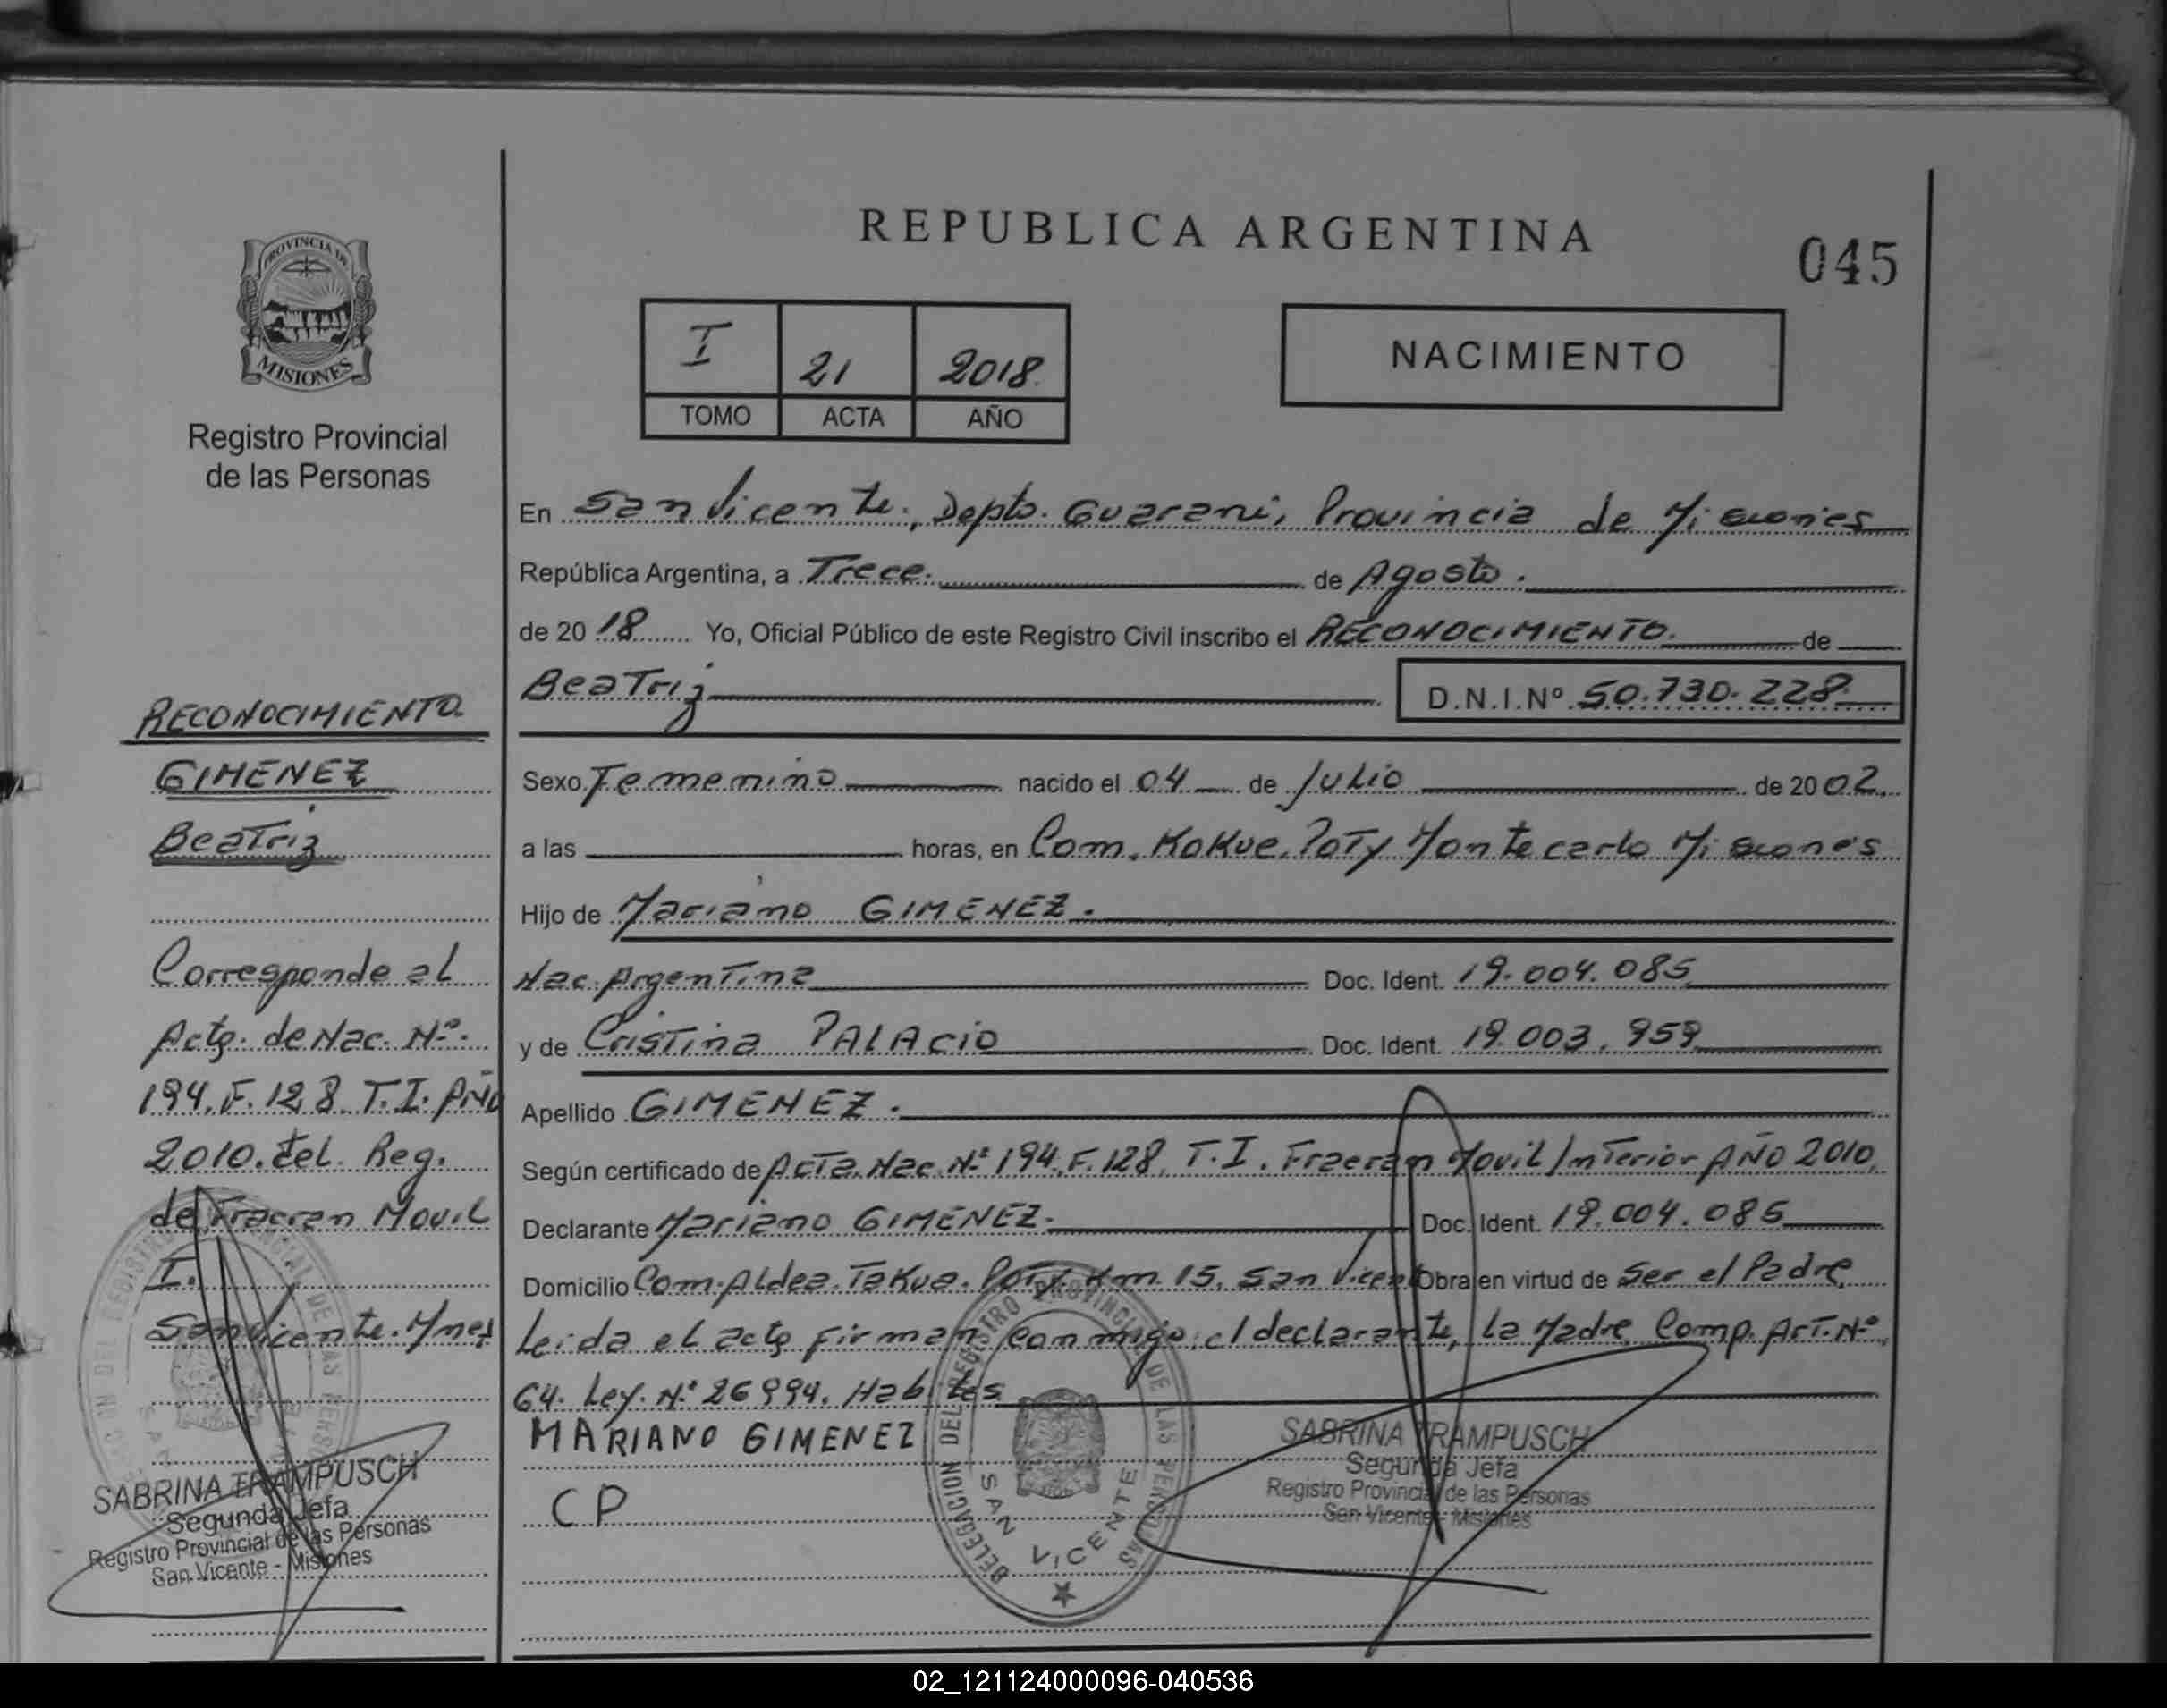 REPUBLICA ARGENTINA
045
PROVINCIA DE
MISIONES
Registro Provincial
de las Personas
I 21 2018.
TOMO ACTA AÑO
NACIMIENTO
En San Vicente., Depto. Guarani, Provincia de Misiones
República Argentina, a Trece. de Agosto.
de 20 18 Yo, Oficial Público de este Registro Civil inscribo el RECONOCIMIENTO. de
Beatriz D.N.I.Nº 50.730.228
Sexo Femenino nacido el 04 de Julio de 20 02.
a las horas, en Com. Kokue. Poty Montecarlo Misiones
Hijo de Mariano GIMENEZ.
Nac. Argentina Doc. Ident. 19.004.085
y de Cristina PALACIO Doc. Ident. 19.003.959
Apellido GIMENEZ.
Según certificado de Acta. Nac. Nº 194. F. 128. T.I. Fracran Movil Interior AÑO 2010.
Declarante Mariano GIMENEZ. Doc. Ident. 19.004.085
Domicilio Com. Aldea. Takua. Poty. Km 15. San Vicent Obra en virtud de Ser el Padre
Leida el acta firman conmigo el declarante, la Madre Comp. Art. Nº
64. Ley. Nº 26994. Habiles
MARIANO GIMENEZ
CP
DELEGACION DEL REGISTRO PROVINCIAL DE LAS PERSONAS
SAN VICENTE
SABRINA TRAMPUSCH
Segunda Jefa
Registro Provincial de las Personas
San Vicente - Misiones
RECONOCIMIENTO.
GIMENEZ
Beatriz
Corresponde al
Acta. de Nac. Nº.
194. F. 128 T.I. AÑO
2010. del Reg.
de Fracran Movil
I.
San Vicente. Mnes
SABRINA TRAMPUSCH
Segunda Jefa
Registro Provincial de las Personas
San Vicente - Misiones
02_121124000096-040536